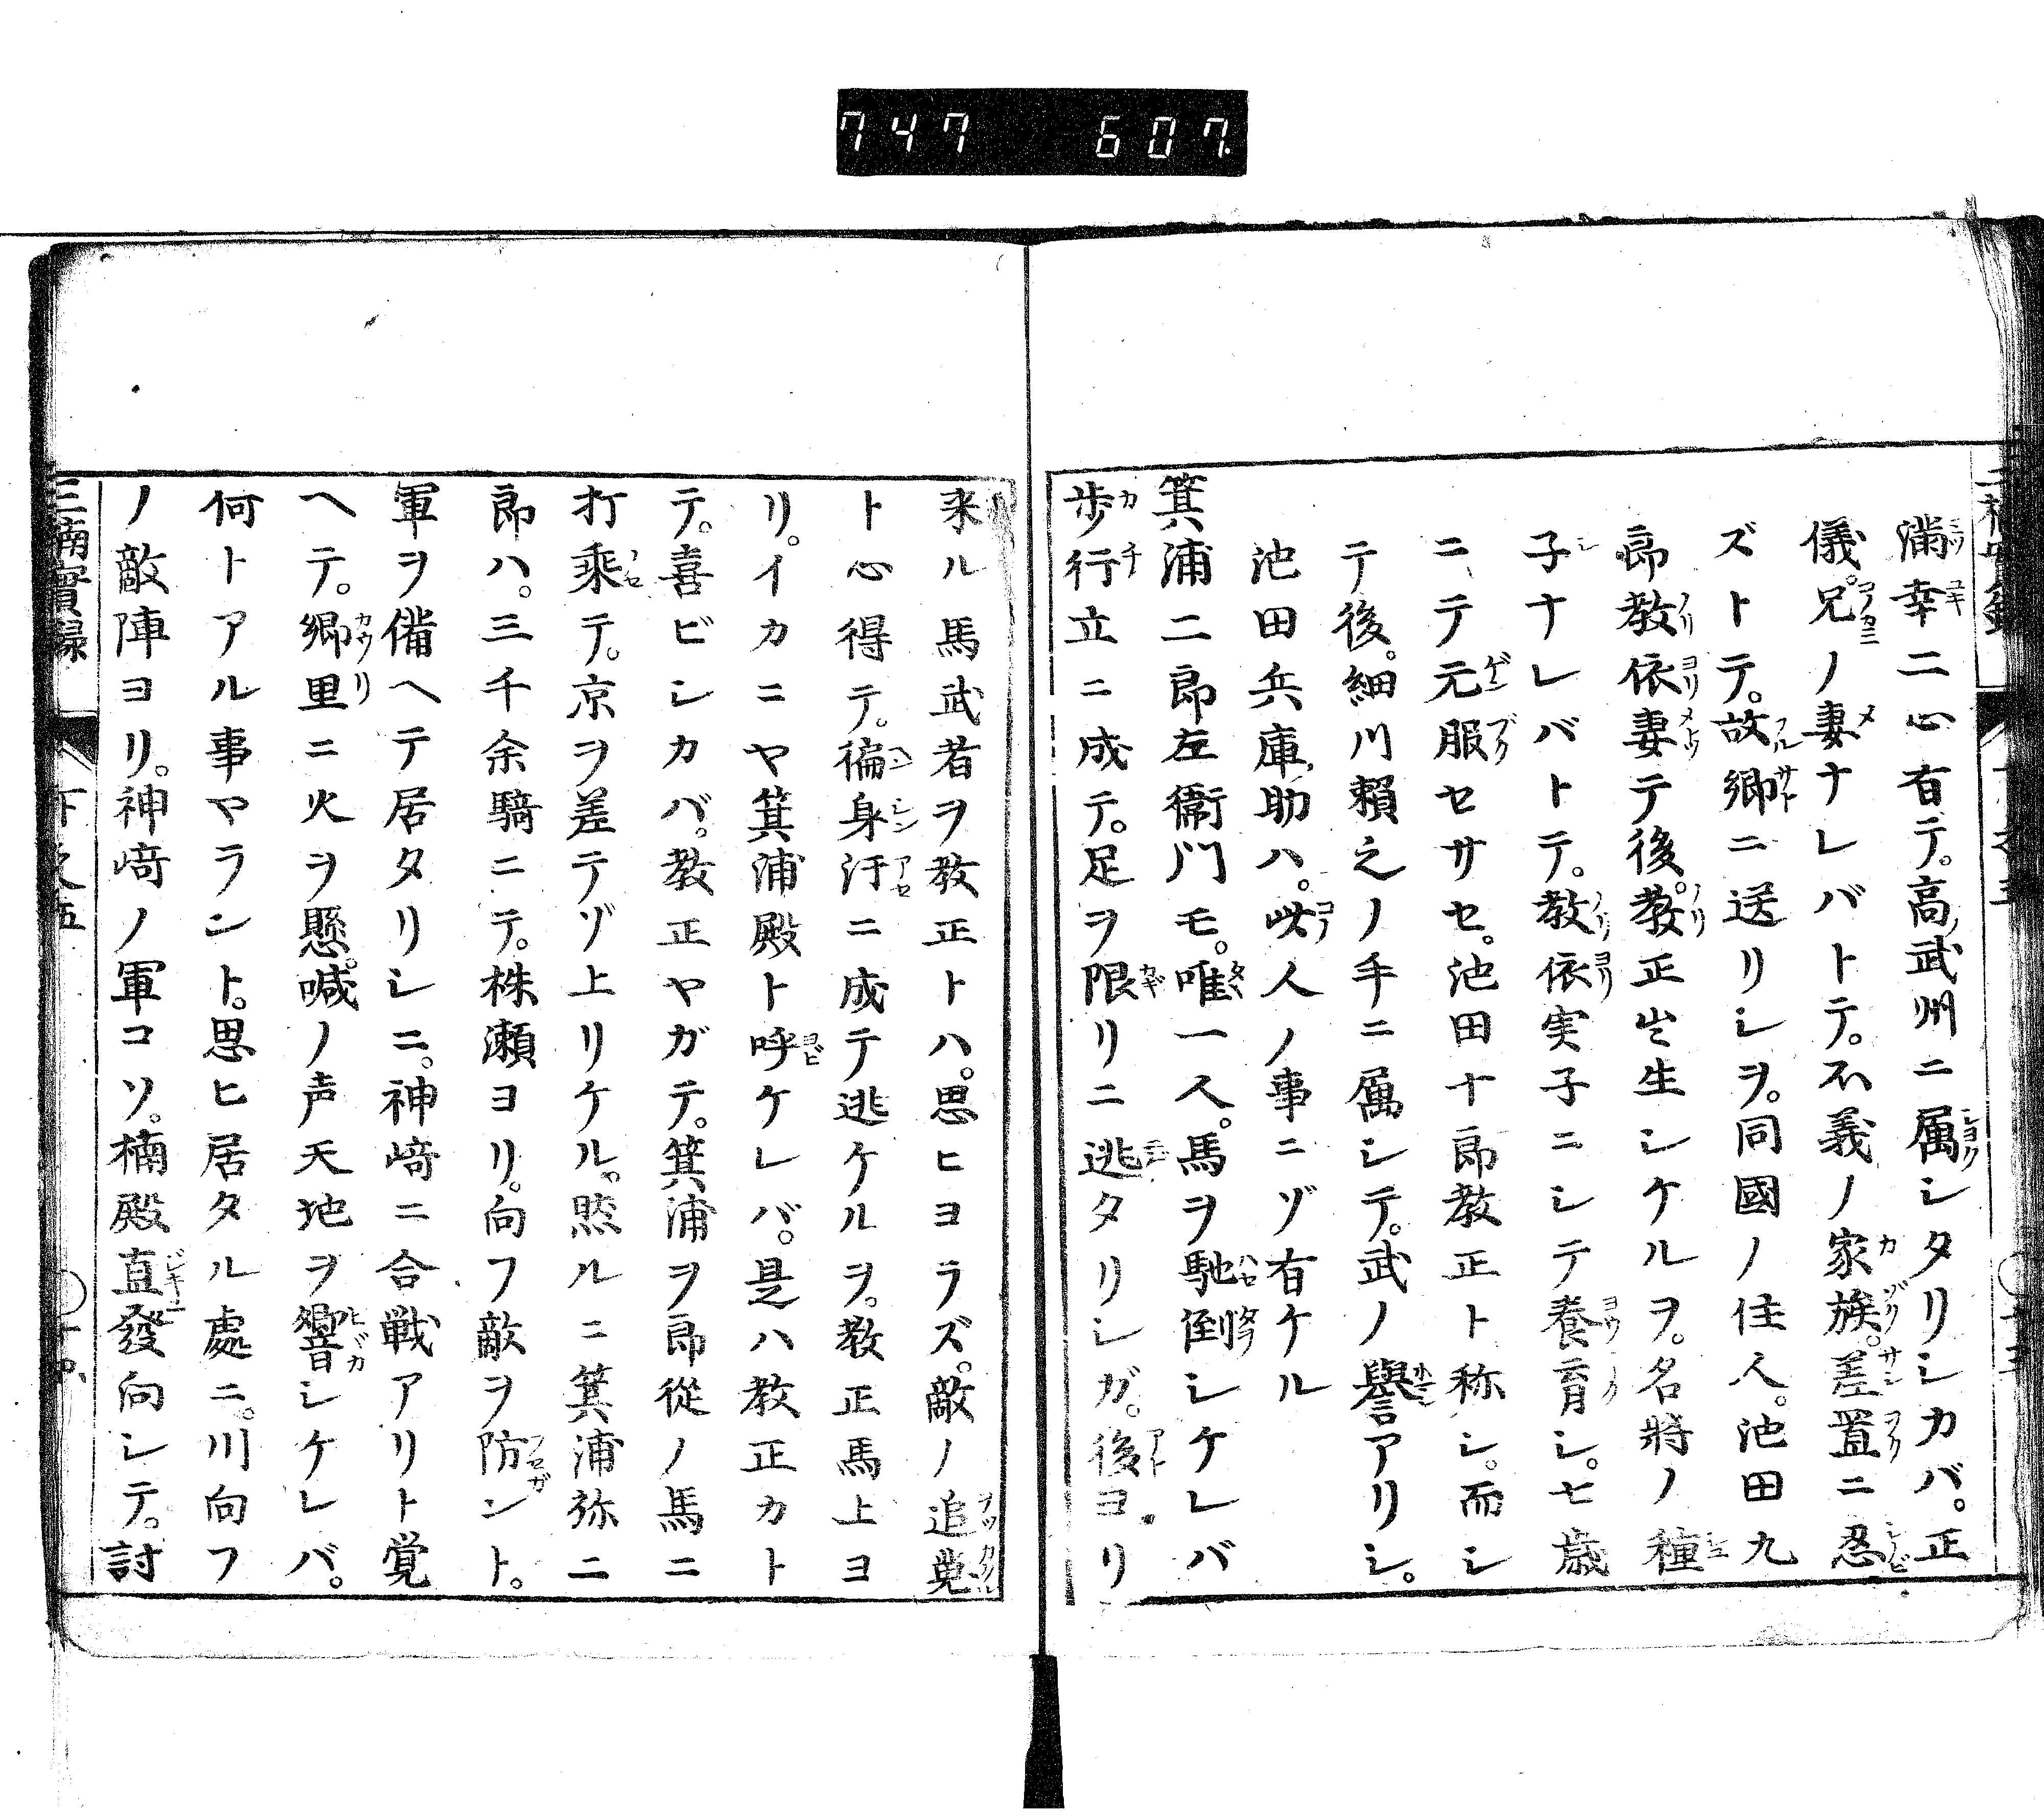 747 607
満幸二心有テ。高武州ニ属シタリシカバ。正
儀。兄ノ妻ナレバトテ。不義ノ家族。差置ニ忍
ズトテ。故郷ニ送リシヲ。同國ノ住人。池田九
郎教依妻テ後。教正出生シケルヲ。名將ノ種
子ナレバトテ。教依実子ニシテ養育シ。七歳
ニテ元服セサセ。池田十郎教正ト称シ。而シ
テ後。細川頼之ノ手ニ属シテ。武ノ譽アリシ。
池田兵庫助ハ。此人ノ事ニゾ有ケル
箕浦二郎左衞門モ。唯一人。馬ヲ馳倒シケレバ
歩行立ニ成テ。足ヲ限リニ逃タリシガ。後ヨリ
来ル馬武者ヲ教正トハ。思ヒヨラズ。敵ノ追蒐
ト心得テ。徧身汗ニ成テ逃ケルヲ。教正馬上ヨ
リ。イカニヤ箕浦殿ト呼ケレバ。是ハ教正カト
テ。喜ビシカバ。教正ヤガテ。箕浦ヲ郎從ノ馬ニ
打乘テ。京ヲ差テゾ上リケル。然ルニ箕浦弥二
郎ハ。三千余騎ニテ。株瀬ヨリ。向フ敵ヲ防ント。
軍ヲ備ヘテ居タリシニ。神﨑ニ合戦アリト覚
ヘテ。郷里ニ火ヲ懸。喊ノ声天地ヲ響シケレバ。
何トアル事ヤラント。思ヒ居タル處ニ。川向フ
ノ敵陣ヨリ。神﨑ノ軍コソ。楠殿直發向シテ。討
三楠實録 下之五 十四